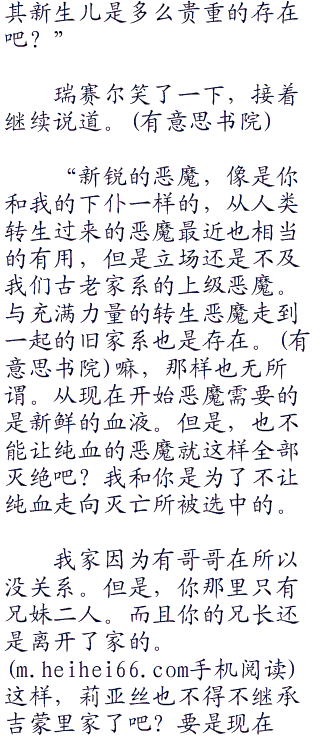 其新生儿是多么贵重的存在
吧？”
瑞赛尔笑了一下，接着
继续说道。(有意思书院)
“新锐的恶魔，像是你
和我的下仆一样的，从人类
转生过来的恶魔最近也相当
的有用，但是立场还是不及
我们古老家系的上级恶魔。
与充满力量的转生恶魔走到
一起的旧家系也是存在。(有
意思书院)嘛，那样也无所
谓。从现在开始恶魔需要的
是新鲜的血液。但是，也不
能让纯血的恶魔就这样全部
灭绝吧？我和你是为了不让
纯血走向灭亡所被选中的。
我家因为有哥哥在所以
没关系。但是，你那里只有
兄妹二人。而且你的兄长还
是离开了家的。
(m.heihei66.com手机阅读)
这样，莉亚丝也不得不继承
吉蒙里家了吧？要是现在